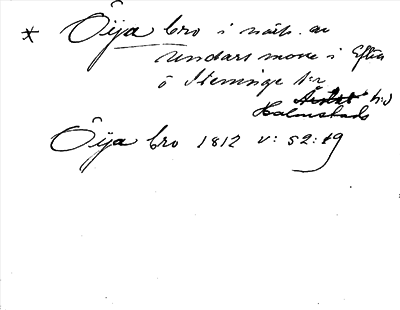 * Öija bro i närh. av
Rundarsmove i Efter
ö Steninge sn
Årstad hd
Halmstads
Öija bro 1812 v: 52:19